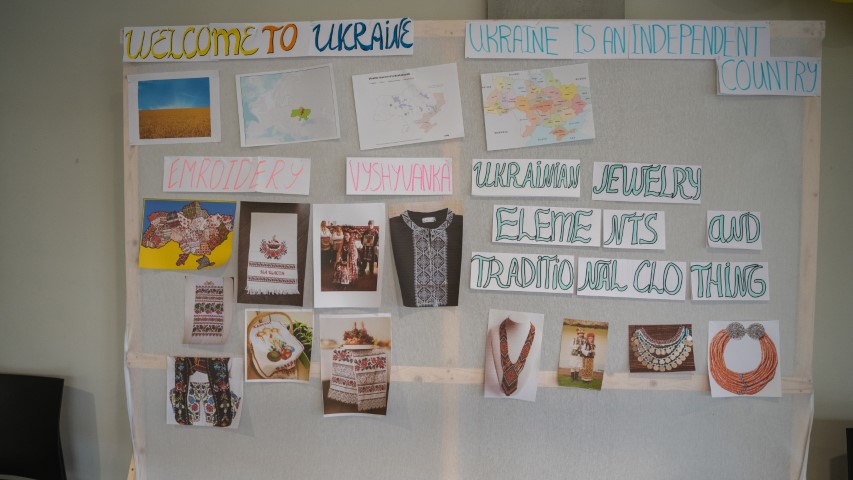 WELCOME TO UKRAINE
UKRAINE IS AN INDEPENDENT
COUNTRY
EMROIDERY
VYSHYVANKA
UKRAINIAN JEWELRY
ELEMENTS AND
TRADITIONAL CLOTHING
НА ЩАСТЯ